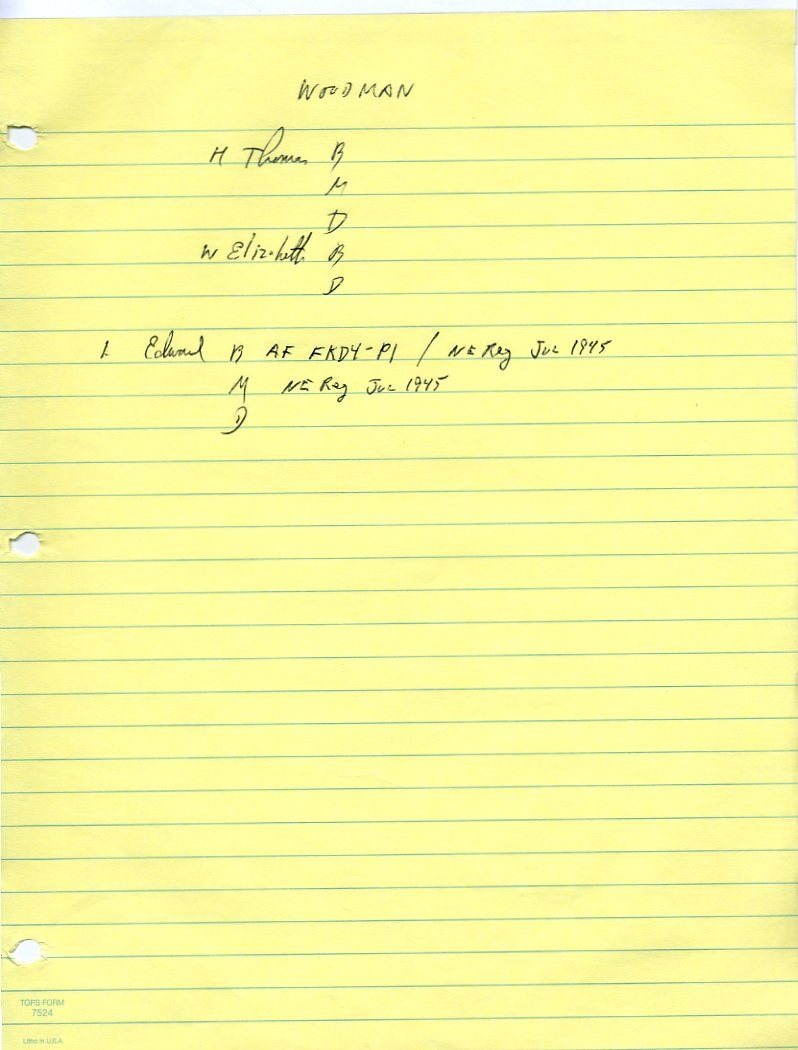 WOODMAN
H Thomas B
M
D
W Elizabeth B
D
1. Edward B AF FKD4-P1 / NE Reg Jul 1945
M NE Reg Jul 1945
D
TOPS FORM
7524
Litho in U.S.A.